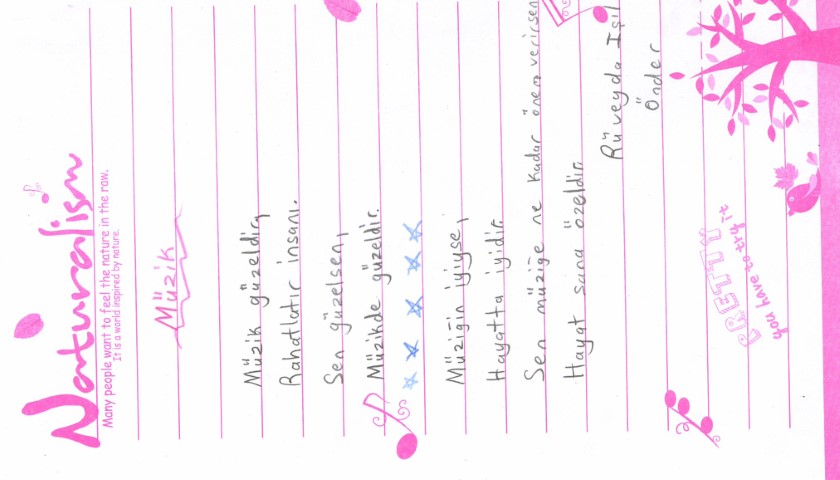 Naturalism
Many people want to feel the nature in the raw.
It is a world inspired by nature.
Müzik
Müzik güzeldir,
Rahatlatır insanı.
Sen güzelsen,
Müzikde güzeldir.
Müziğin iyiyse,
Hayatta iyidir.
Sen müziğe ne kadar önem verirsen
Hayat sana özeldir.
Rüveyda Işıl
Önder
PRETTY
you have to try it